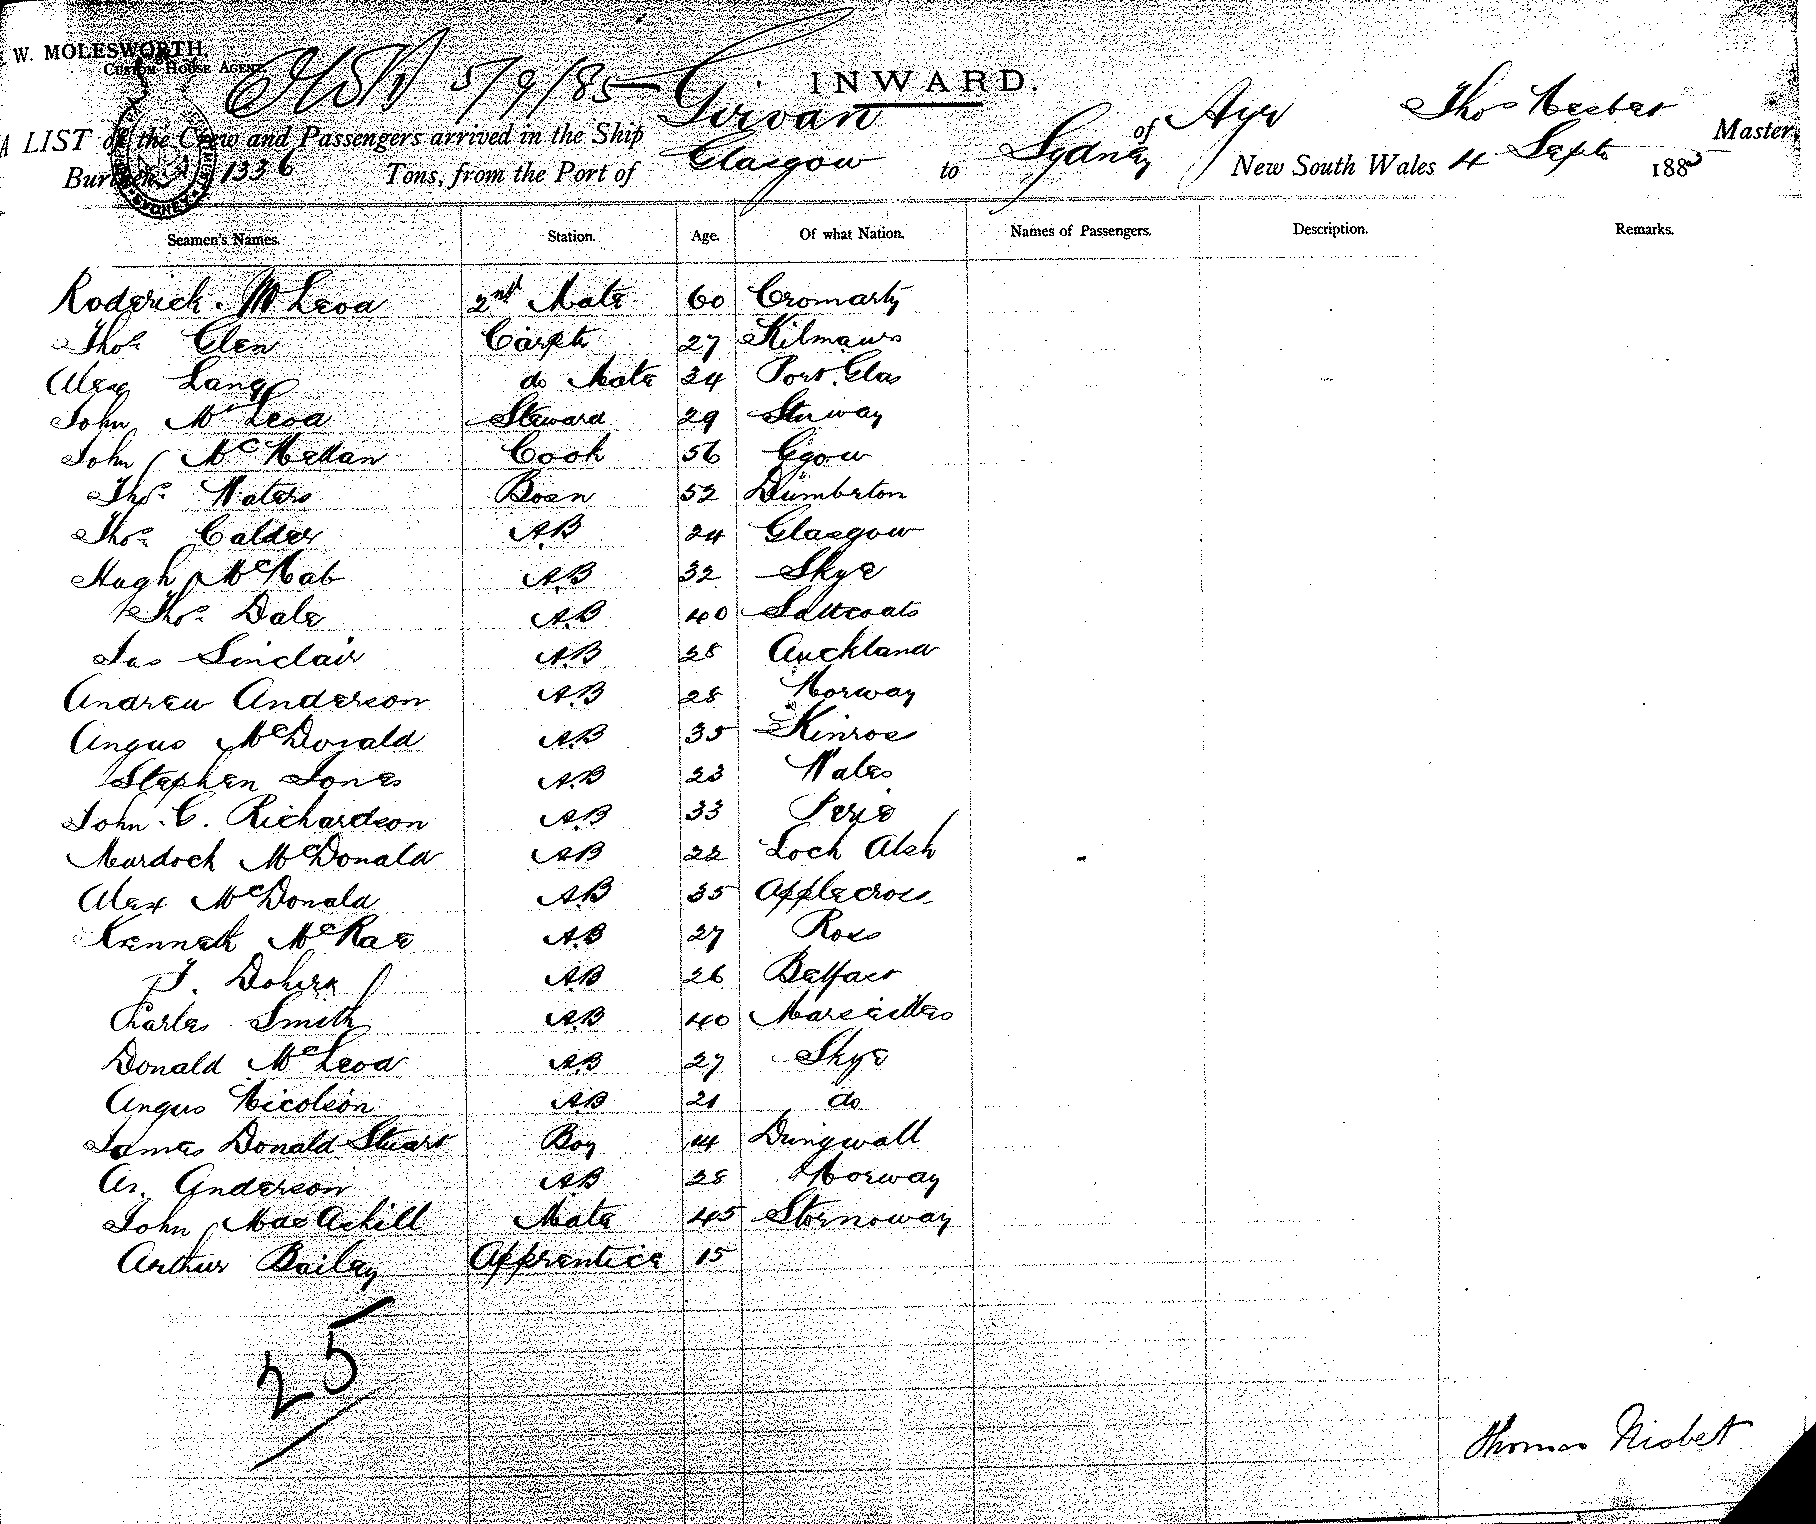 W. MOLESWORTH,
CUSTOM HOUSE AGENT
5/9/85
INWARD.
A LIST of the Crew and Passengers arrived in the Ship Girvan of Ayr Thos Nesbet Master,
Burthen 1336 Tons, from the Port of Glasgow to Sydney New South Wales 4 Septr 1885
SYDNEY
Seamen's Names. Station. Age. Of what Nation. Names of Passengers. Description. Remarks.
Roderick McLeod 2nd Mate 60 Cromarty
Thos Glen Carptr 27 Kilmaurs
Alex Lang do Mate 24 Port Glas
John McLeod Steward 29 Storway
John McKellan Cook 56 Ggow
Thos Waters Bosn 52 Dumberton
Thos Calder AB 24 Glasgow
Hugh McNab AB 32 Skye
Thos Dale AB 40 Saltcoats
Jas Sinclair AB 28 Auckland
Andrew Anderson AB 28 Norway
Angus McDonald AB 35 Kinross
Stephen Jones AB 23 Wales
John C. Richardson AB 33
Murdoch McDonald AB 22 Loch Alsh
Alex McDonald AB 35 Applecross
Kenneth McRae AB 27 Ross
J. AB 26 Belfast
Charles Smith AB 40 Marseilles
Donald McLeod AB 27 Skye
Angus Nicolson AB 21 do
James Donald Stuart Boy 14 Dingwall
An. Anderson AB 28 Norway
John MacAskill Mate 45 Stornoway
Arthur Bailey Apprentice 15
25
Thomas Nisbet